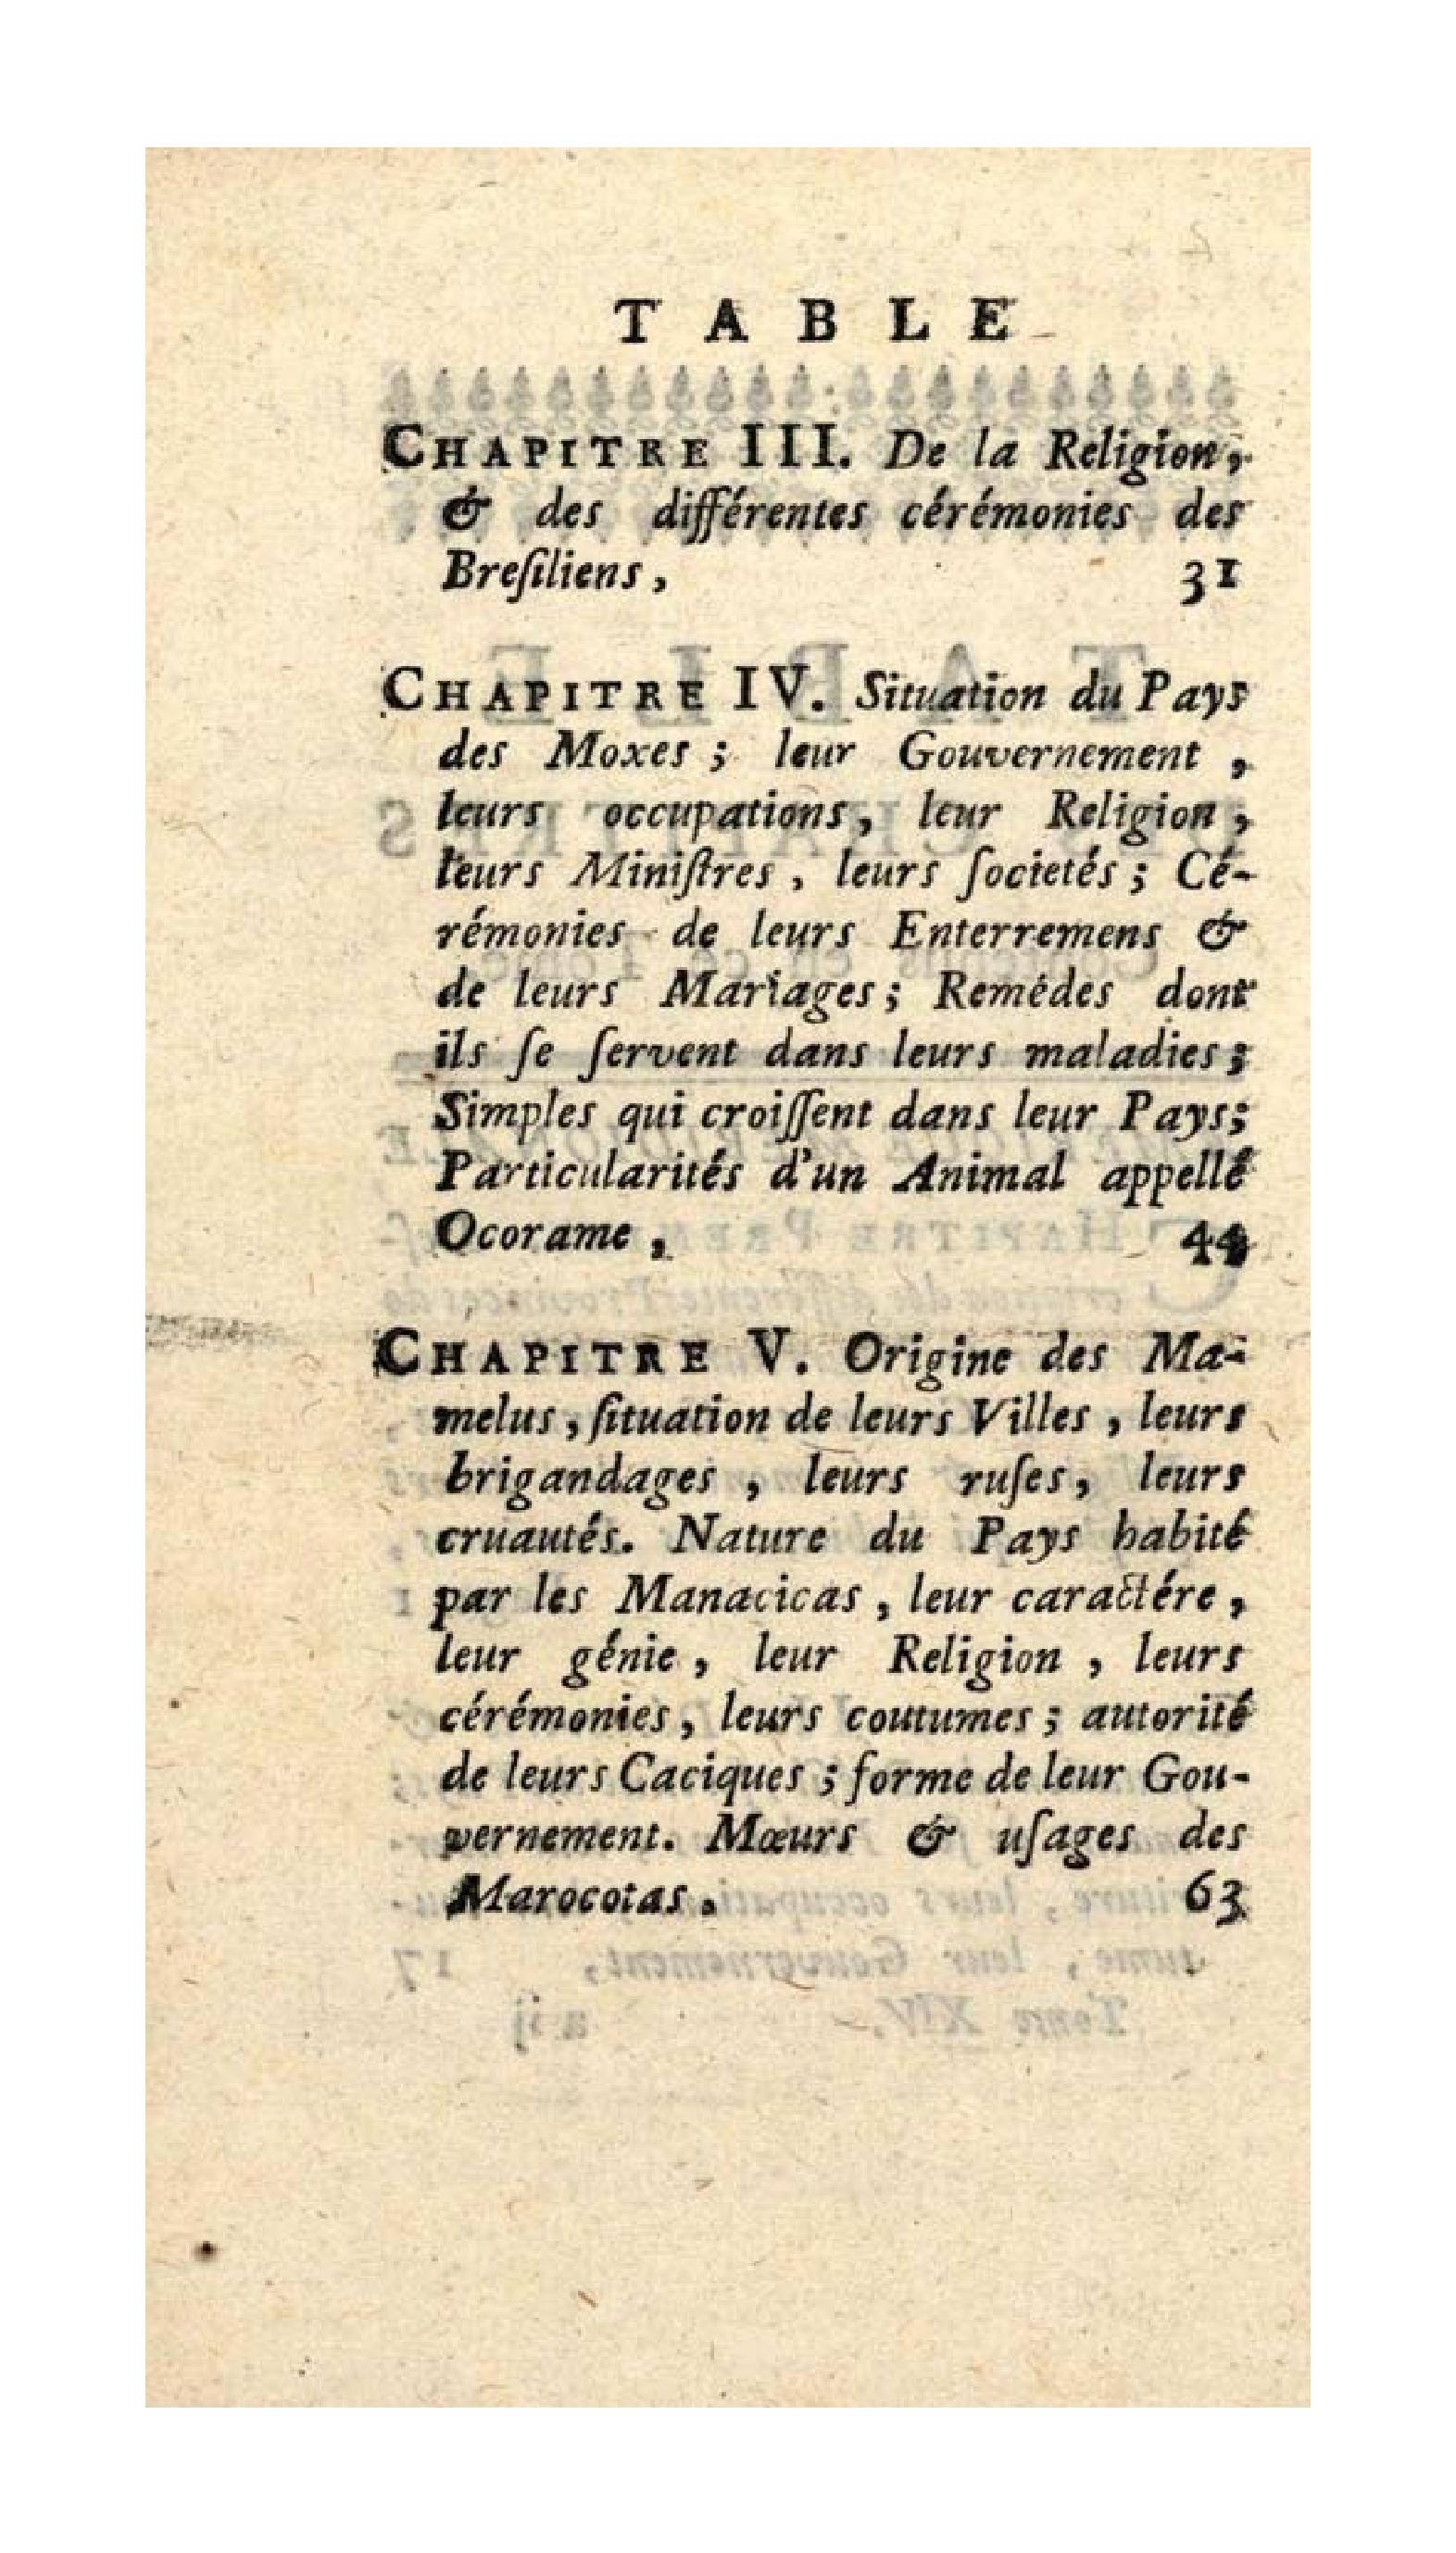 TABLE
CHAPITRE III. De la Religion,
& des différentes cérémonies des
Breſiliens, 31
CHAPITRE IV. Situation du Pays
des Moxes ; leur Gouvernement ,
leurs occupations, leur Religion ,
leurs Miniſtres , leurs ſocietés ; Cé-
rémonies de leurs Enterremens &
de leurs Mariages ; Remédes dont
ils ſe ſervent dans leurs maladies ;
Simples qui croiſſent dans leur Pays;
Particularités d'un Animal appellé
Ocorame , 44
CHAPITRE V. Origine des Ma-
melus , ſituation de leurs Villes , leurs
brigandages , leurs ruſes, leurs
cruautés. Nature du Pays habité
par les Manacicas , leur caractére ,
leur génie , leur Religion , leurs
cérémonies, leurs coutumes ; autorité
de leurs Caciques ; forme de leur Gou-
vernement. Mœurs & uſages des
Marocotas. 63